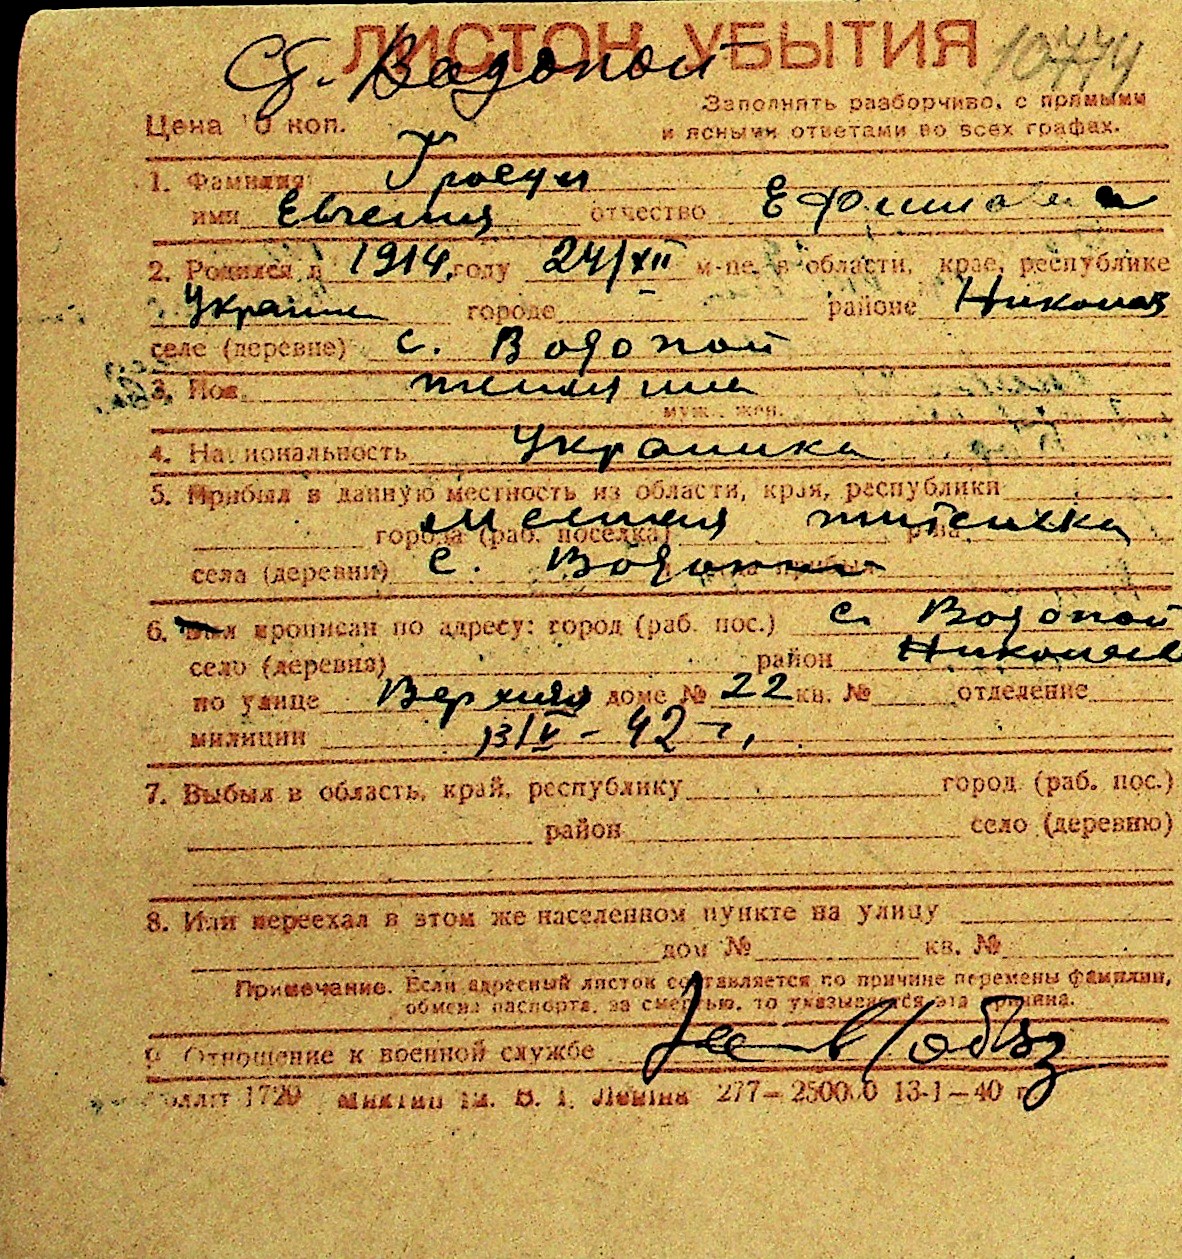 ЛИСТОК УБЫТИЯ
10774
Ст. Вадопой
Заполнять разборчиво, с прямыми
Цена 10 коп.
и ясными ответами во всех графах.
1. Фамилия
имя Евгения отчество Ефимовна
2. Родился в 1914 году 24/XII м-це, в области, крае, республике
Украина городе районе Николаев
селе (деревне) с. Водопой
3. Пол женщина
муж., жен.
4. Национальность Украинка
5. Прибыл в данную местность из области, края, республики
местная жителька
города (раб. поселка) р-на
села (деревни) с. Водопой
6. Был прописан по адресу: город (раб. пос.) с. Водопой
село (деревня) район Николаев
по улице Верхняя доме № 22 кв. № отделение
милиции 13/V - 42 г.
7. Выбыл в область, край, республику город (раб. пос.)
район село (деревню)
8. Или переехал в этом же населенном пункте на улицу
дом № кв. №
Примечание. Если адресный листок составляется по причине перемены фамилии,
обмена паспорта, за смертью, то указывается эта причина.
9. Отношение к военной службе
1720 им. В. И. Ленина 277—250000 13-1—40 г.